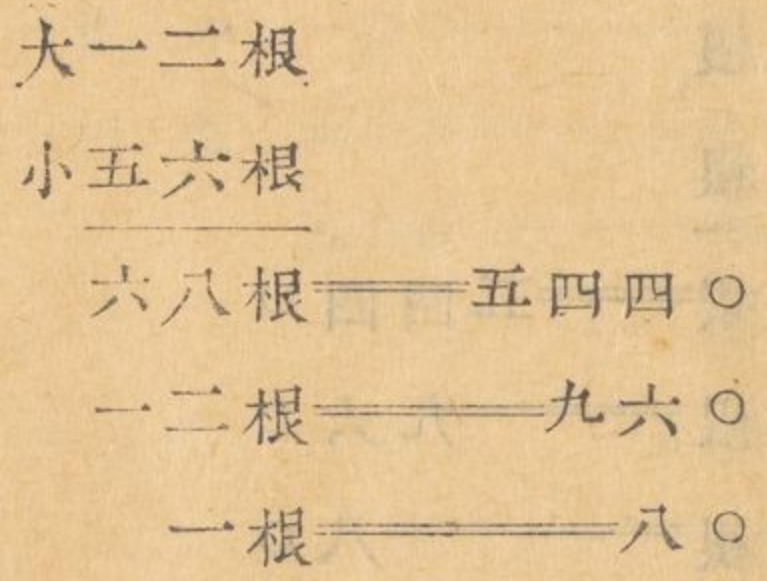 大一二根
小五六根
六八根══五四四〇
一二根══九六〇
一根══八〇